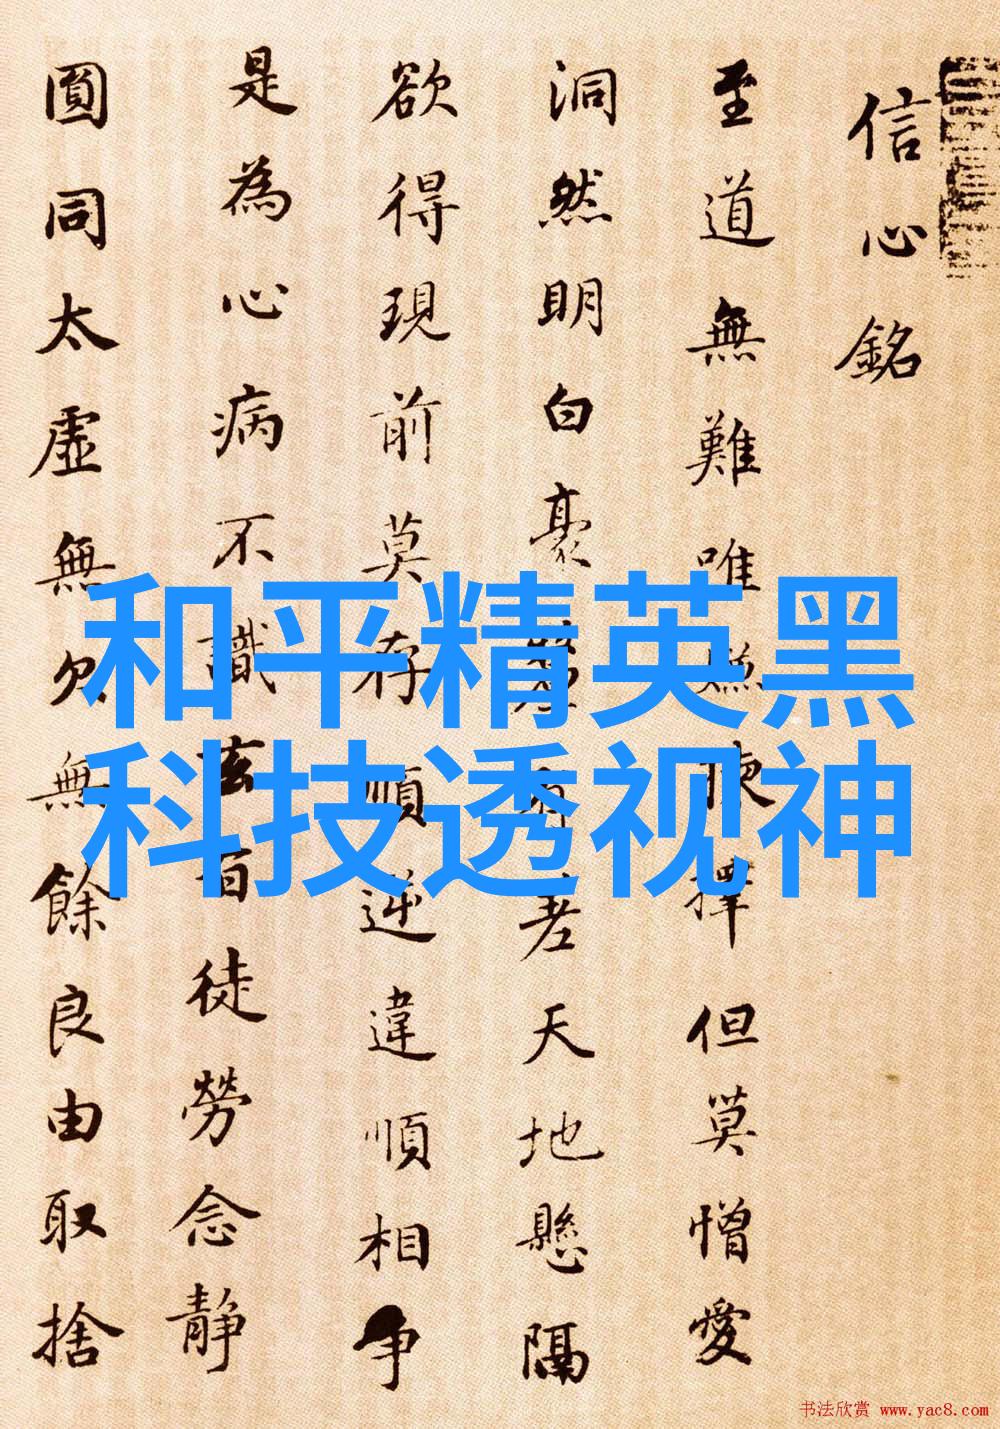 信心銘
至道無難唯嫌揀擇但莫憎愛
洞然明白豪釐有差天地懸隔
欲得現前莫存順逆違順相争
是為心病不識玄旨徒勞念静
圓同太虛無欠無餘良由取捨
和平精英黑
科技透视神
书法欣赏 www.yac8.com